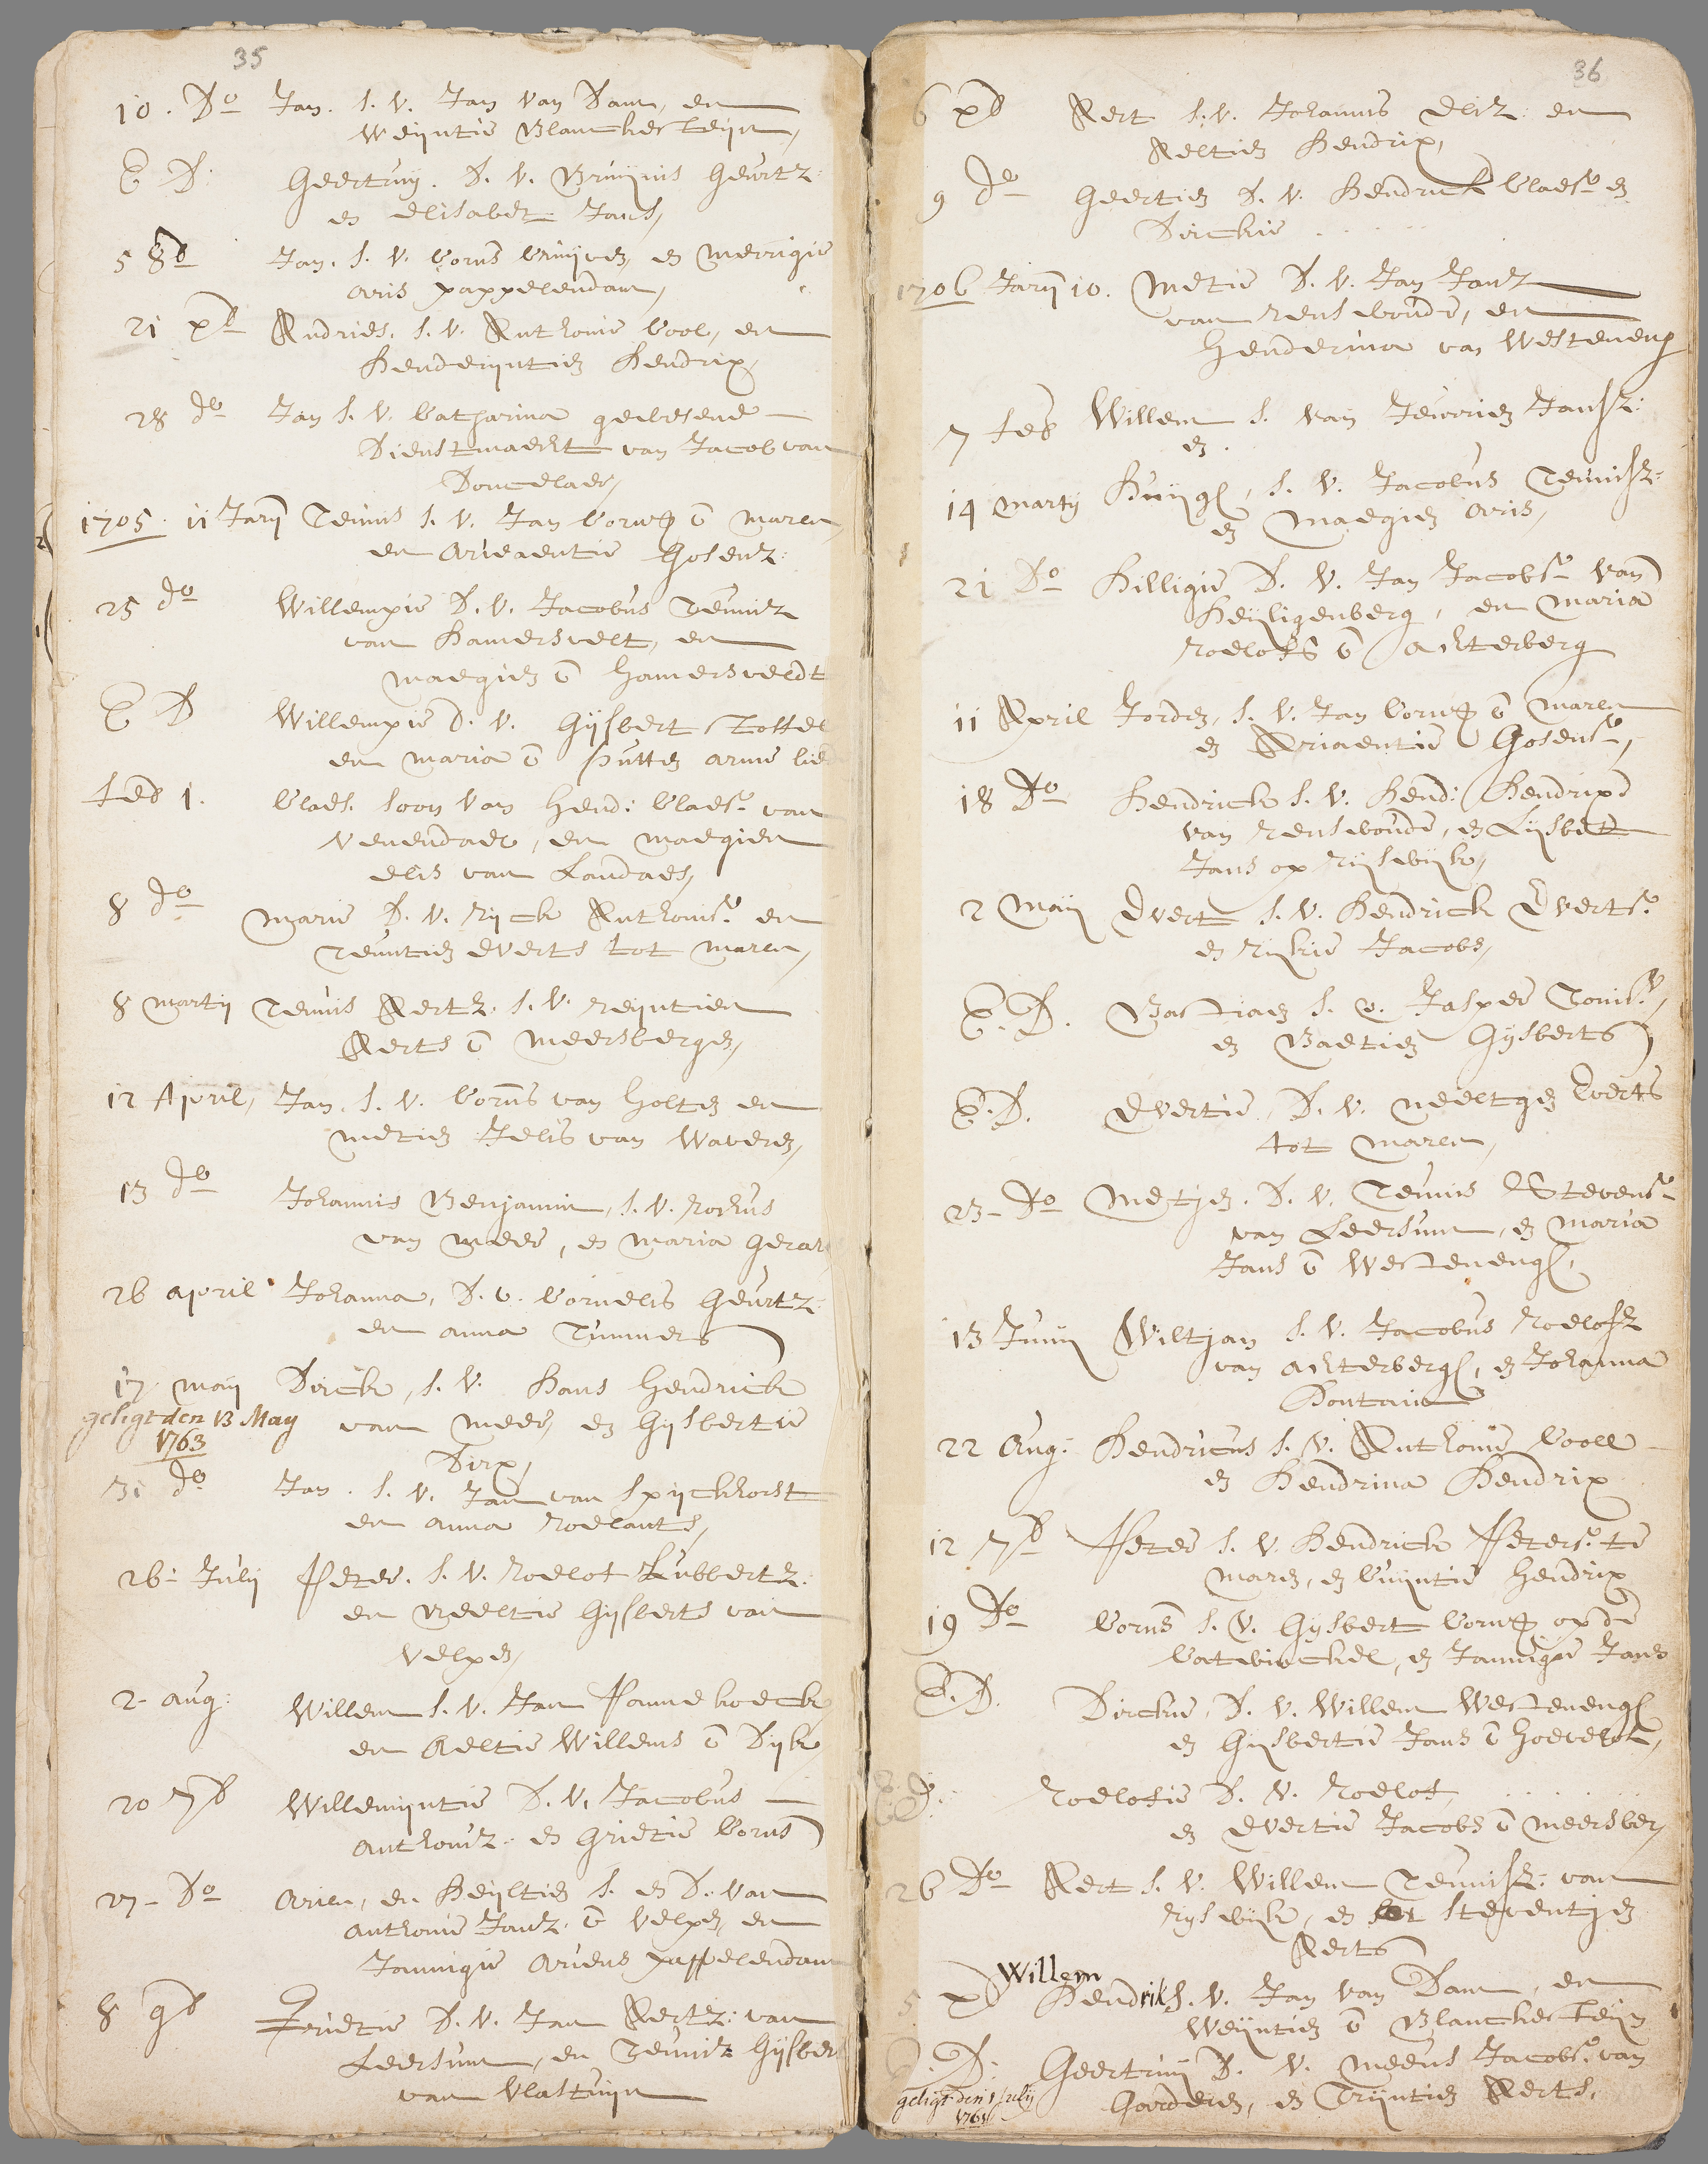 35
10. Do Jan. S. V. Jan van Dam, en
Weijntie Blanckesteijn,
E D. Geertruij. D. V. Bruijnis Geurtz:
en Elisabet Jans,
5 8b Jan. S. V. Corns Cruijven, en Merrigie
Aris pappelendam,
21 xb Andries. S. V. Anthonie Cool, en
Henderijntien Hendrix,
28 do Jan S. V. Catharina gewesene
Dienstmaecht van Jacob van
1705. 11 Jary Teunis S. V. Jan Cornss v Maren,
en Ariaentie Gosenz:
25 do Willempie D. V. Jacobus Teunitz
van Hamersvelt, en
Maegien v Hamersveldt
E D Willempie D. V. Gijsbert Stoffel
en Maria v Putten arme lie
Feb 1. Claes. Soon van Hend: Claess. van
Venendael, en Maegien
Elis van Landaes,
8 do Marie D. V. Rijck Anthonisz. en
Teuntien Everts tot Maren,
8 Martij Teunis Aertz. S. V. Reijntien
Aerts v Meersbergen,
12 April, Jan. S. V. Corns van Holten en
Metien Jelis van Waveren,
13 do Johannis Benjamin, S. V. Rochus
van Meer, en Maria Gerar
26 April Johanna, D. V. Cornelis Geurtz:
en Anna Timmers
17 Maij Dirck, S. V. Hans Hendrick
geligt den 13 May
van Meer, en Gijsbertie
1763
Dirx,
31 do Jan. S. V. Jan van Spijckhorst
en Anna Roelants,
26: Julij Peter. S. V. Roelof Lubbertz:
en Neeltie Gijsberts van
Velpen,
2 Aug: Willem S. V. Jan Pannekoeck
en Aeltie Willems v Dijk,
20 7b Willemijntie D. V. Jacobus
Anthonisz: en Grietie Corns
27 Do Arien, en Heijltien S. en D. van
Anthonie Jansz. v Velpen, en
Jannigie Ariens Pappelendam
8 9b Grietie D. V. Jan Aertz: van
Leersum, en Teunitz Gijsber
van Vlastuijn
36
6 xb Aert S. V. Johannis Elis en
Aeltien Hendrix,
9 do Geertien D. V. Hendrick Claess. en
Dirckie . . . . .
1706 Jary 10. Metie D. V. Jan Jansz
van Renswoude, en
Henderina van Westeneng
7 Feb Willem S. van Jeurien Jansz:
en .
14 Martij Huijgh, S. V. Jacobus Teunisz:
en Maegien Aris,
21 Do Hilligie D. V. Jan Jacobs. van
Heijligenberg, en Maria
Roelofs v Achterberg
11 April Jorden, S. V. Jan Cornss v Maren
en Ariaentie Gosens.,
18 Do Hendrick S. V. Hend: Hendrixs
van Renswoude, en Lijsbet
Jans op Rijswijk,
2 Maij Evert S. V. Hendrick Everts.
en Rijkie Jacobs,
E. D. Bastiaen S. v. Jasper Tonis.,
en Baetien Gijsberts
E. D. Evertie, D. V. Neeltgen Everts
tot Maren,
23 Do Metjen. D. V. Teunis Stevens.
van Leersum, en Maria
Jans v Westenengh,
13 Junij Wiltjan S. V. Jacobus Roelofsz
van Achterbergh, en Johanna
Fontain
22 Aug: Hendricus S. V. Anthonie Cooll
en Hendrina Hendrix
12 7b Peter S. V. Hendrick Peters. te
Maren, en Cuijntie Hendrix
19 Do Corns S. V. Gijsbert Cornss op de
Catwinckel, en Jannigie Jans
E. D. Dirckie, D. V. Willem Westenengh
en Gijsbertie Jans v Hoevelaek,
E. D. Roelofie D. V. Roelof, . . . . .
en Evertie Jacobs v Meersber,
26 Do Aert S. V. Willem Teunisz: van
Rijswijk, en Steventjen
Aerts
Willem
5 xb Hendrik S. V. Jan van Dam, en
Weijntien v Blanckesteijn
E. D: Geertruij D. V. Meeus Jacobs. van
geligt den 1 July
Garderen, en Trijntien Aerts.
1761